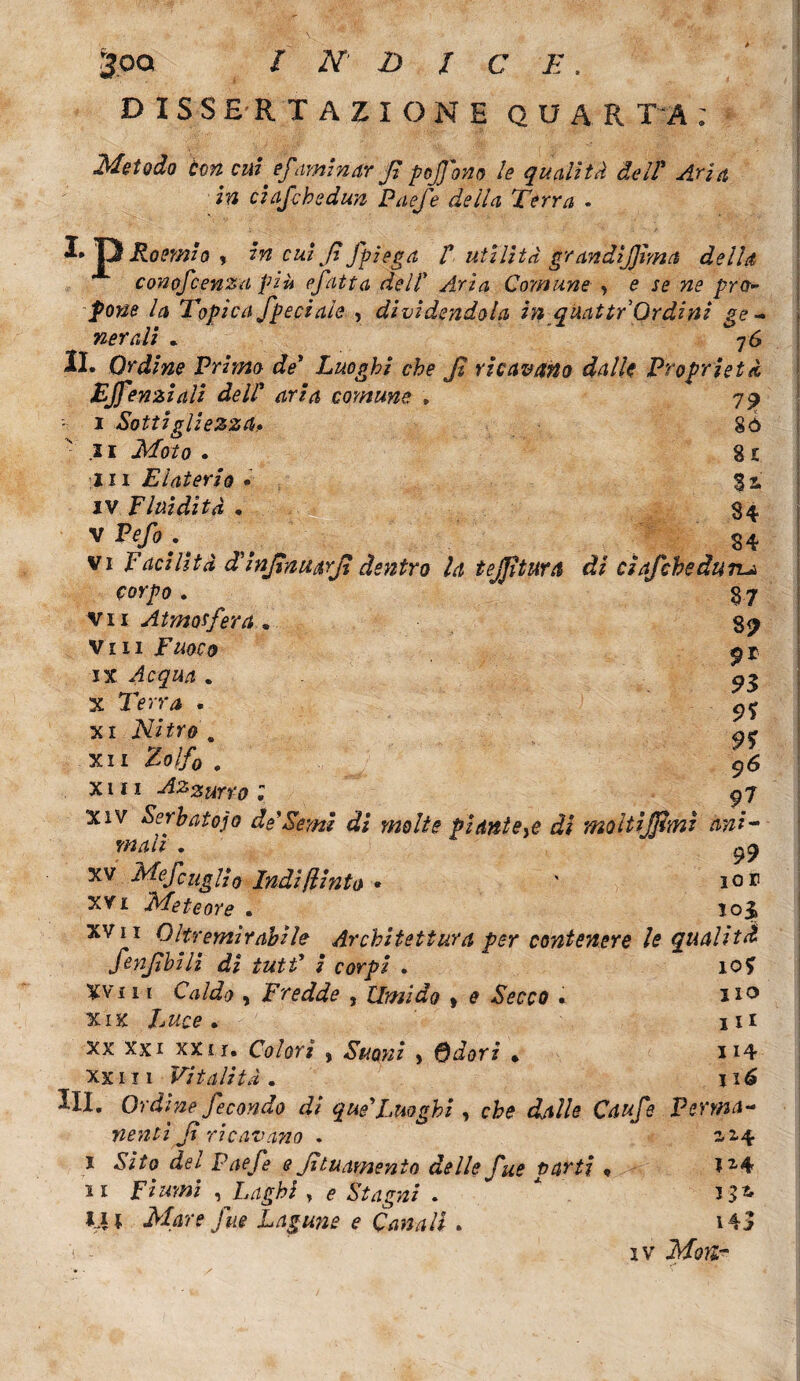 300 INDICE.
DISSERTAZIONE QUARTA:
Metodo con cui esaminar si possono le qualità dell' Aria
in ciaschedun Paese della Terra .
I. PRoemio , in cui si spiega l' utilità grandissima della
conoscenza più esatta dell' Aria Comune , e se ne pro-
pone la Topica speciale , dividendola in quattr'Ordini ge-
nerali . 76
II. Ordine Primo de' Luoghi che si ricavano dalle Proprietà
Essenziali dell' aria comune . 79
I Sottigliezza. 80
II Moto . 81
III Elaterio . 82
IV Fluidità . 84
V Peso . 84
VI Facilità d'insinuarsi dentro la tessitura di ciaschedun
corpo . 87
VII Atmosfera . 89
VIII Fuoco 91
IX Acqua . 93
X Terra . 95
XI Nitro . 95
XII Zolfo . 96
XIII Azzurro ; 97
XIV Serbatojo de'Semi di molte piante,e di moltissimi ani-
mali . 99
XV Mescuglio Indistinto . 101
XVI Meteore . 103
XVII Oltremirabile Architettura per contenere le qualità
sensibili di tutt' i corpi . 105
XVIII Caldo , Fredde , Umido , e Secco . 110
XIX Luce . 111
XX XXI XXII. Colori , Suoni , Odori . 114
XXIII Vitalità . 116
III. Ordine secondo di que'Luoghi , che dalle Cause Perma-
nenti si ricavano . 224
I Sito del Paese e situamento delle sue parti . 124
II Fiumi , Laghi , e Stagni . 132
III Mare sue Lagune e Canali . 143
IV Mon-